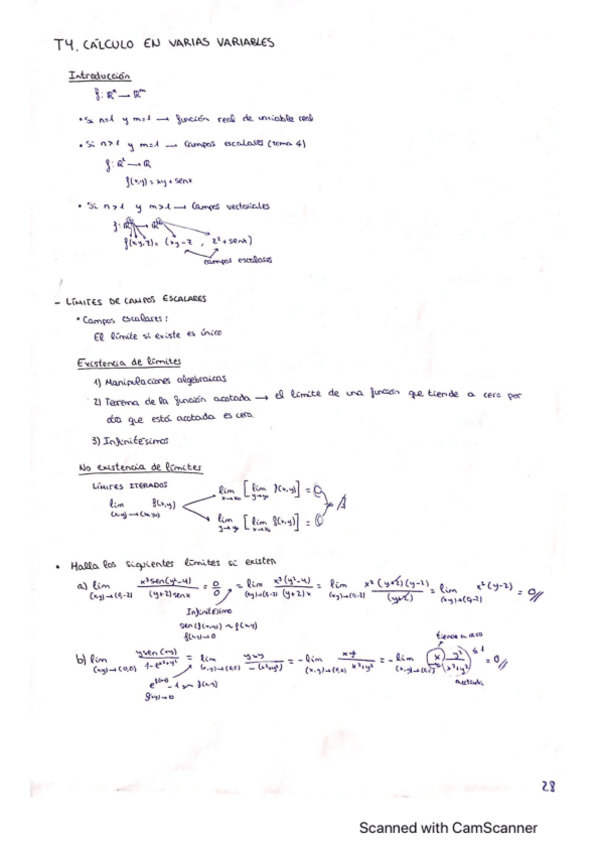 T4. CÁLCULO EN VARIAS VARIABLES
Introducción
f: ℝⁿ → ℝᵐ
• Si n=1 y m=1 → función real de variable real
• Si n>1 y m=1 → Campos escalares (tema 4)
f: ℝ² → ℝ
f(x,y) = xy + senx
• Si n>1 y m>1 → Campos vectoriales
f: ℝ³ → ℝ²
f(x,y,z) = (xy-z , z² + senx)
campos escalares
- LÍMITES DE CAMPOS ESCALARES
• Campos escalares:
El límite si existe es único
Existencia de límites
1) Manipulaciones algebraicas
2) Teorema de la función acotada → el límite de una función que tiende a cero por
otra que está acotada es cero.
3) Infinitésimos
No existencia de límites
LÍMITES ITERADOS
lim [lim f(x,y)] =
lim f(x,y)
lim [lim f(x,y)] =
• Halla los siguientes límites si existen
a) lim (x,y)→(0,-2) x³sen(y²-4) / (y+2)senx = 0/0 = lim (x,y)→(0,-2) x³(y²-4) / (y+2)x = lim (x,y)→(0,-2) x²(y+2)(y-2) / (y+2) = lim (x,y)→(0,-2) x²(y-2) = 0//
Infinitésimo
sen f(x,y) ~ f(x,y)
f(x,y)→0
tiende a cero
b) lim (x,y)→(0,0) ysen(xy) / 1-e^(x²+y²) = lim (x,y)→(0,0) yxy / -(x²+y²) = - lim (x,y)→(0,0) xy² / x²+y² = - lim (x,y)→(0,0) x (y² / x²+y²) ≤1 = 0//
e^f(x,y) - 1 ~ f(x,y)
f(x,y)→0
acotada
28
Scanned with CamScanner